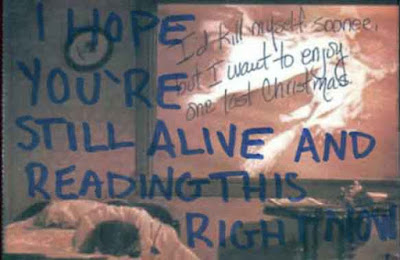 I HOPE
YOU'RE
STILL ALIVE AND
READING THIS
RIGHT NOW
I'd kill myself sooner,
but I want to enjoy
one last Christmas.